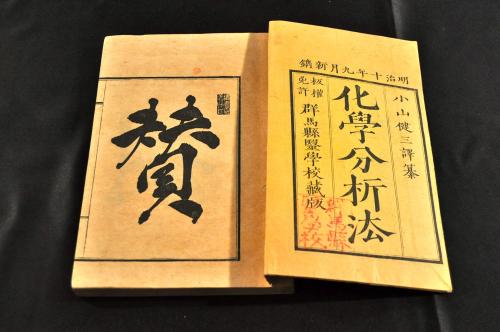 明治十年九月新鐫
小山健三譯纂
化學分析法
板權免許
群馬縣毉學校藏版
賛